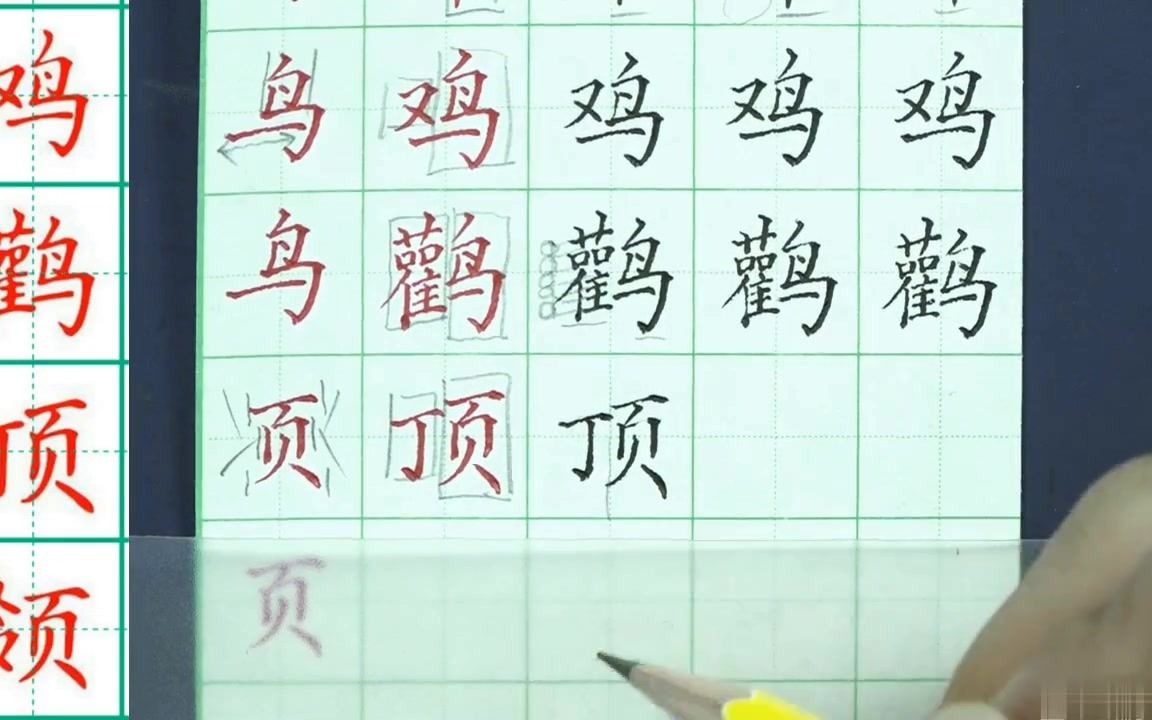 鸡 鸟 鸡 鸡 鸡 鸡
鹳 鸟 鹳 鹳 鹳 鹳
顶 页 顶 顶
页